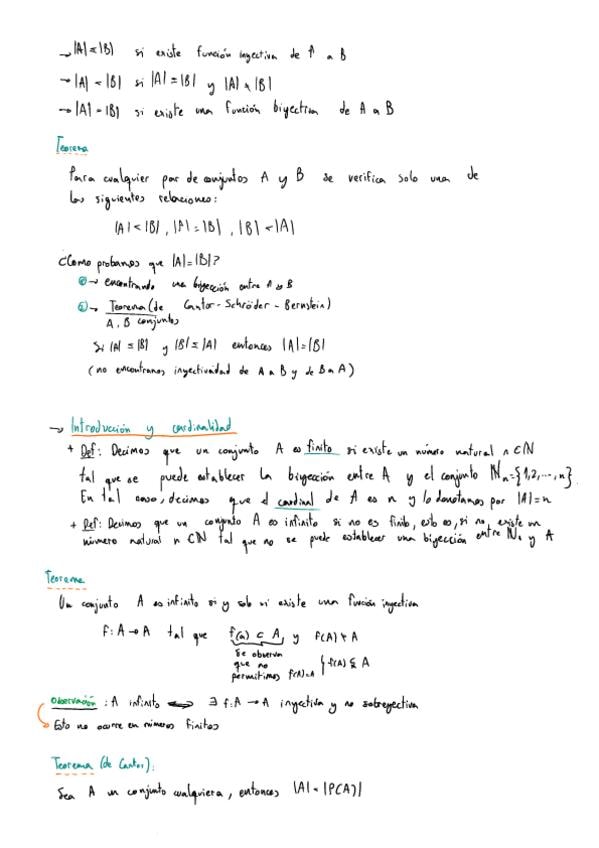 → |A| ≤ |B| si existe función inyectiva de A a B
→ |A| < |B| si |A| ≤ |B| y |A| ≠ |B|
→ |A| = |B| si existe una función biyectiva de A a B
Teorema
Para cualquier par de conjuntos A y B se verifica solo una de
las siguientes relaciones:
|A| < |B| , |A| = |B| , |B| < |A|
¿Como probamos que |A| = |B|?
① → encontrando una biyección entre A y B
② → Teorema (de Cantor - Schröder - Bernstein)
A, B conjuntos
Si |A| ≤ |B| y |B| ≤ |A| entonces |A| = |B|
(no encontramos inyectividad de A a B y de B a A)
→ Introducción y cardinalidad
+ Def: Decimos que un conjunto A es finito si existe un número natural n ∈ ℕ
tal que se puede establecer la biyección entre A y el conjunto ℕn = {1,2,...,n}
En tal caso, decimos que el cardinal de A es n y lo denotamos por |A| = n
+ Def: Decimos que un conjunto A es infinito si no es finito, esto es, si no existe un
número natural n ∈ ℕ tal que no se puede establecer una biyección entre ℕn y A
Teorema
Un conjunto A es infinito si y solo si existe una función inyectiva
f: A → A tal que f(A) ⊂ A, y f(A) ≠ A
Se observa
que no
permitimos f(A)=A } f(A) ⊊ A
Observación : A infinito ⟺ ∃ f: A → A inyectiva y no sobreyectiva
Esto no ocurre en números finitos
Teorema (de Cantor):
Sea A un conjunto cualquiera, entonces |A| < |P(A)|